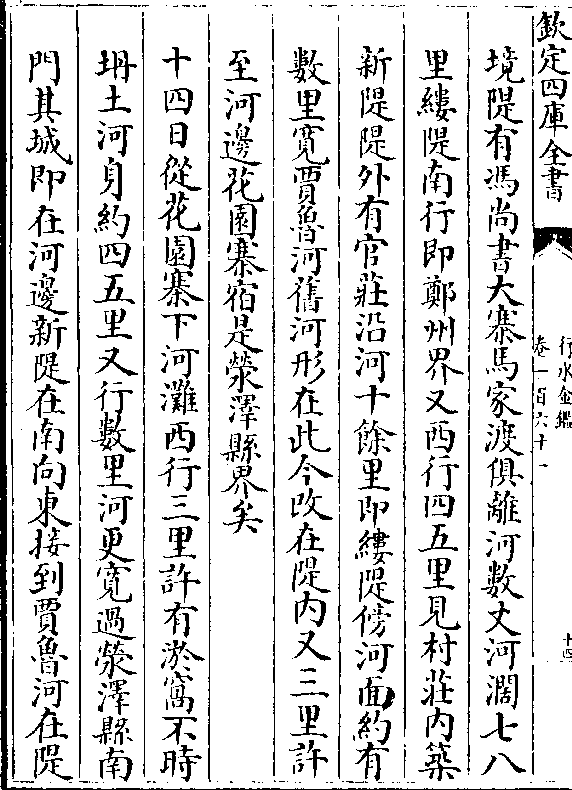 欽定四庫全書
行水金鑑
卷一百六十一
十四
境隄有馮尚書大寨馬家渡俱離河數丈河濶七八
里縷隄南行即鄭州界又西行四五里見村莊内築
新隄隄外有官莊沿河十餘里即縷隄傍河面約有
數里寛賈魯河舊河形在此今改在隄内又三里許
至河邊花園寨宿是滎澤縣界矣
十四日從花園寨下河灘西行三里許有淤窩不時
坍土河身約四五里又行數里河更寛過滎澤縣南
門其城即在河邊新隄在南向東接到賈魯河在隄